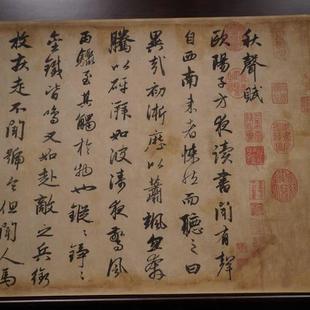 秋聲賦
歐陽子方夜讀書聞有聲
自西南来者悚然而聽之曰
異哉初淅瀝以蕭颯忽奔
騰以砰湃如波濤夜驚風
雨驟至其觸於物也鏦〻錚〻
金鐵皆鳴又如赴敵之兵銜
枚疾走不聞號令但聞人馬